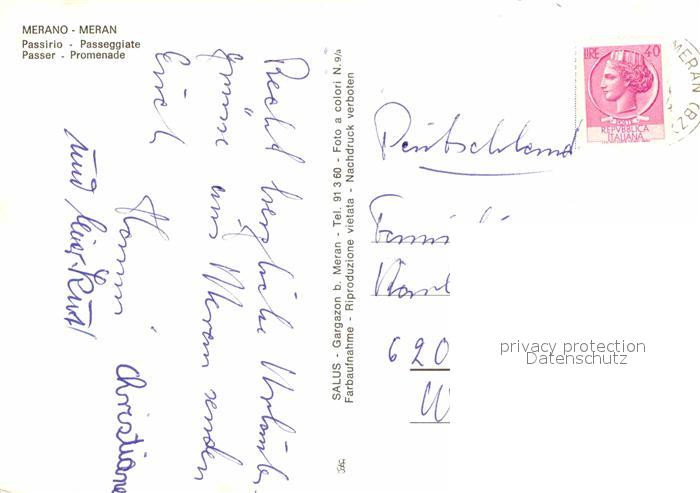 MERANO - MERAN
Passirio - Passeggiate
Passer - Promenade
Recht herzliche Urlaubs-
grüsse aus Meran senden
Euch
Hanni, Christiane
und
SALUS - Gargazon b. Meran - Tel. 91 3 60 - Foto a colori N. 9/a
Farbaufnahme - Riproduzione vietata - Nachdruck verboten
LIRE 40
POSTE
REPVBBLICA
ITALIANA
MERAN (BZ)
Deutschland
Fami
Karl
620
W
privacy protection
Datenschutz